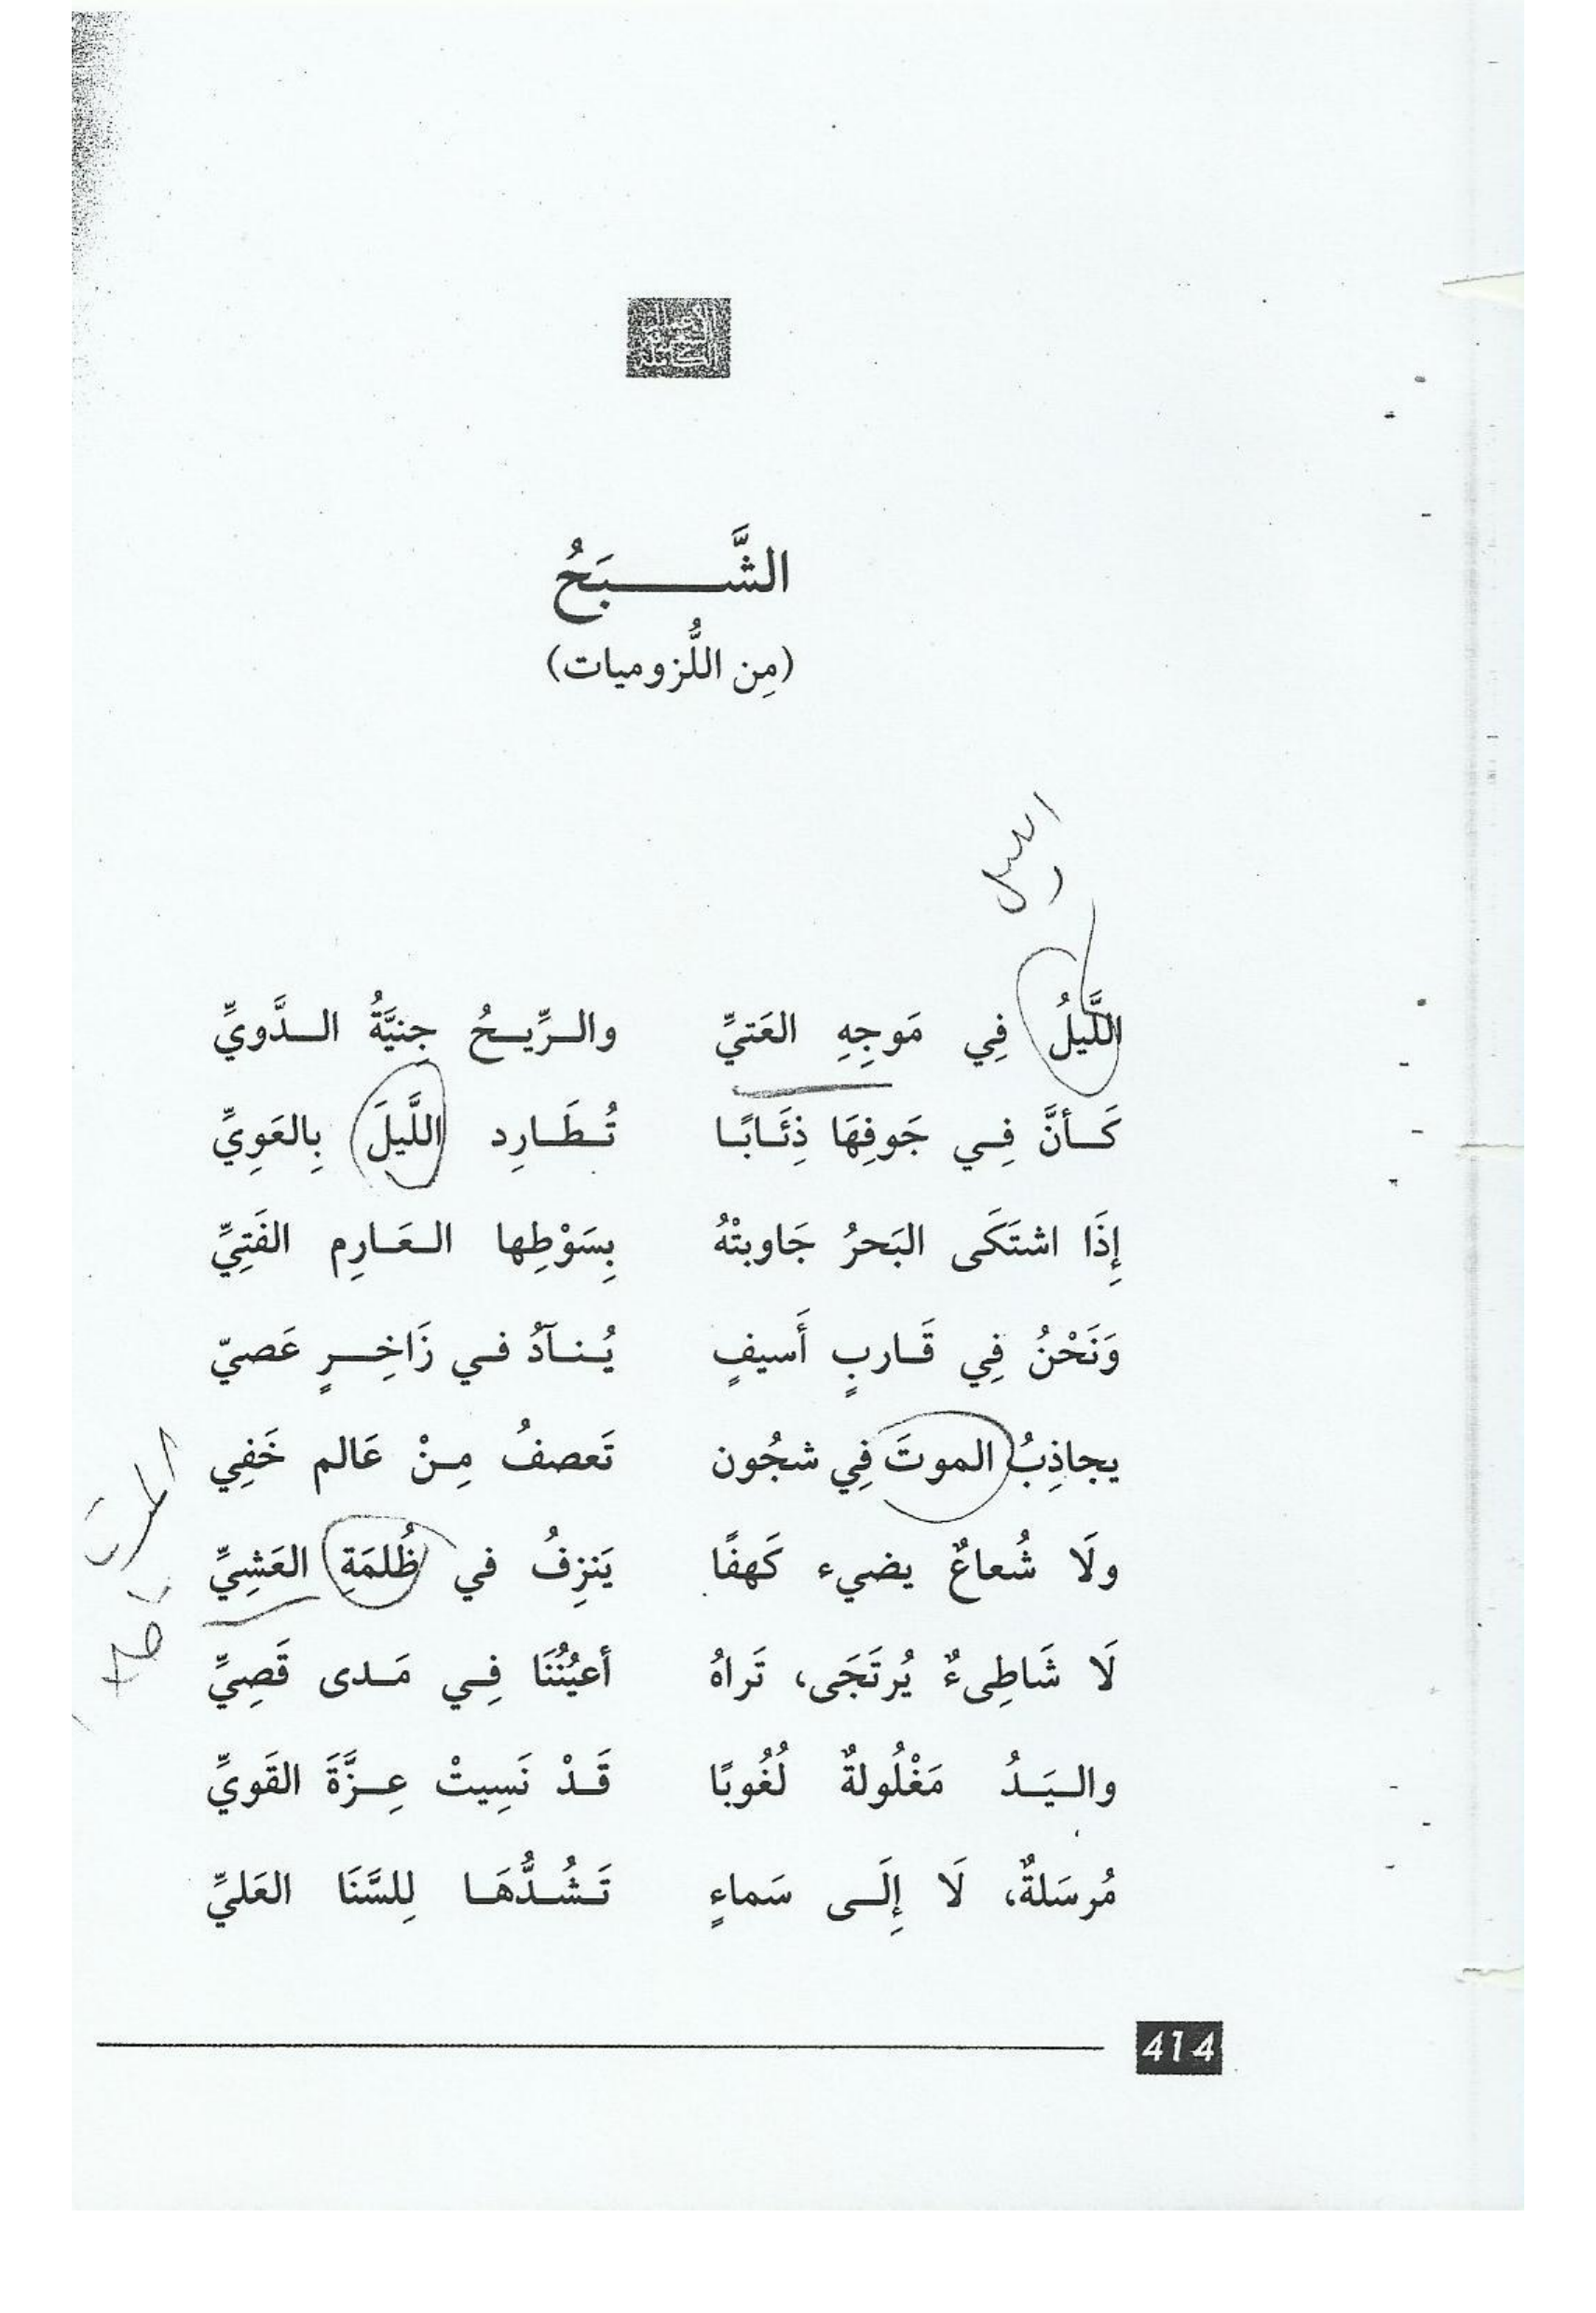 الأعمال
الكاملة
الشَّـــــبَحُ
(مِن اللُّزوميات)
الليل
اللَّيلُ فِي مَوجِهِ العَتيِّ والرِّيحُ جِنيَّةُ الدَّويِّ
كَأنَّ فِي جَوفِهَا ذِئَابًا تُطَارِد اللَّيلَ بِالعَوِيِّ
إِذَا اشتَكَى البَحرُ جَاوبتْهُ بِسَوْطِها العَارِم الفَتِيِّ
وَنَحْنُ فِي قَاربٍ أَسيفٍ يُنآدُ في زَاخِرٍ عَصيّ
يجاذِبُ الموتَ فِي شجُون تَعصفُ مِنْ عَالم خَفِي
الموت
ولَا شُعاعٌ يضيء كَهفًا يَنزِفُ في ظُلمَةِ العَشِيِّ
لَا شَاطِىءٌ يُرتَجَى، تَراهُ أعيُنُنَا فِي مَدى قَصِيِّ
واليَدُ مَغْلُولةٌ لُغُوبًا قَدْ نَسِيتْ عِزَّةَ القَويِّ
مُرسَلةٌ، لَا إِلَى سَماءٍ تَشُدُّهَا لِلسَّنَا العَليِّ
414